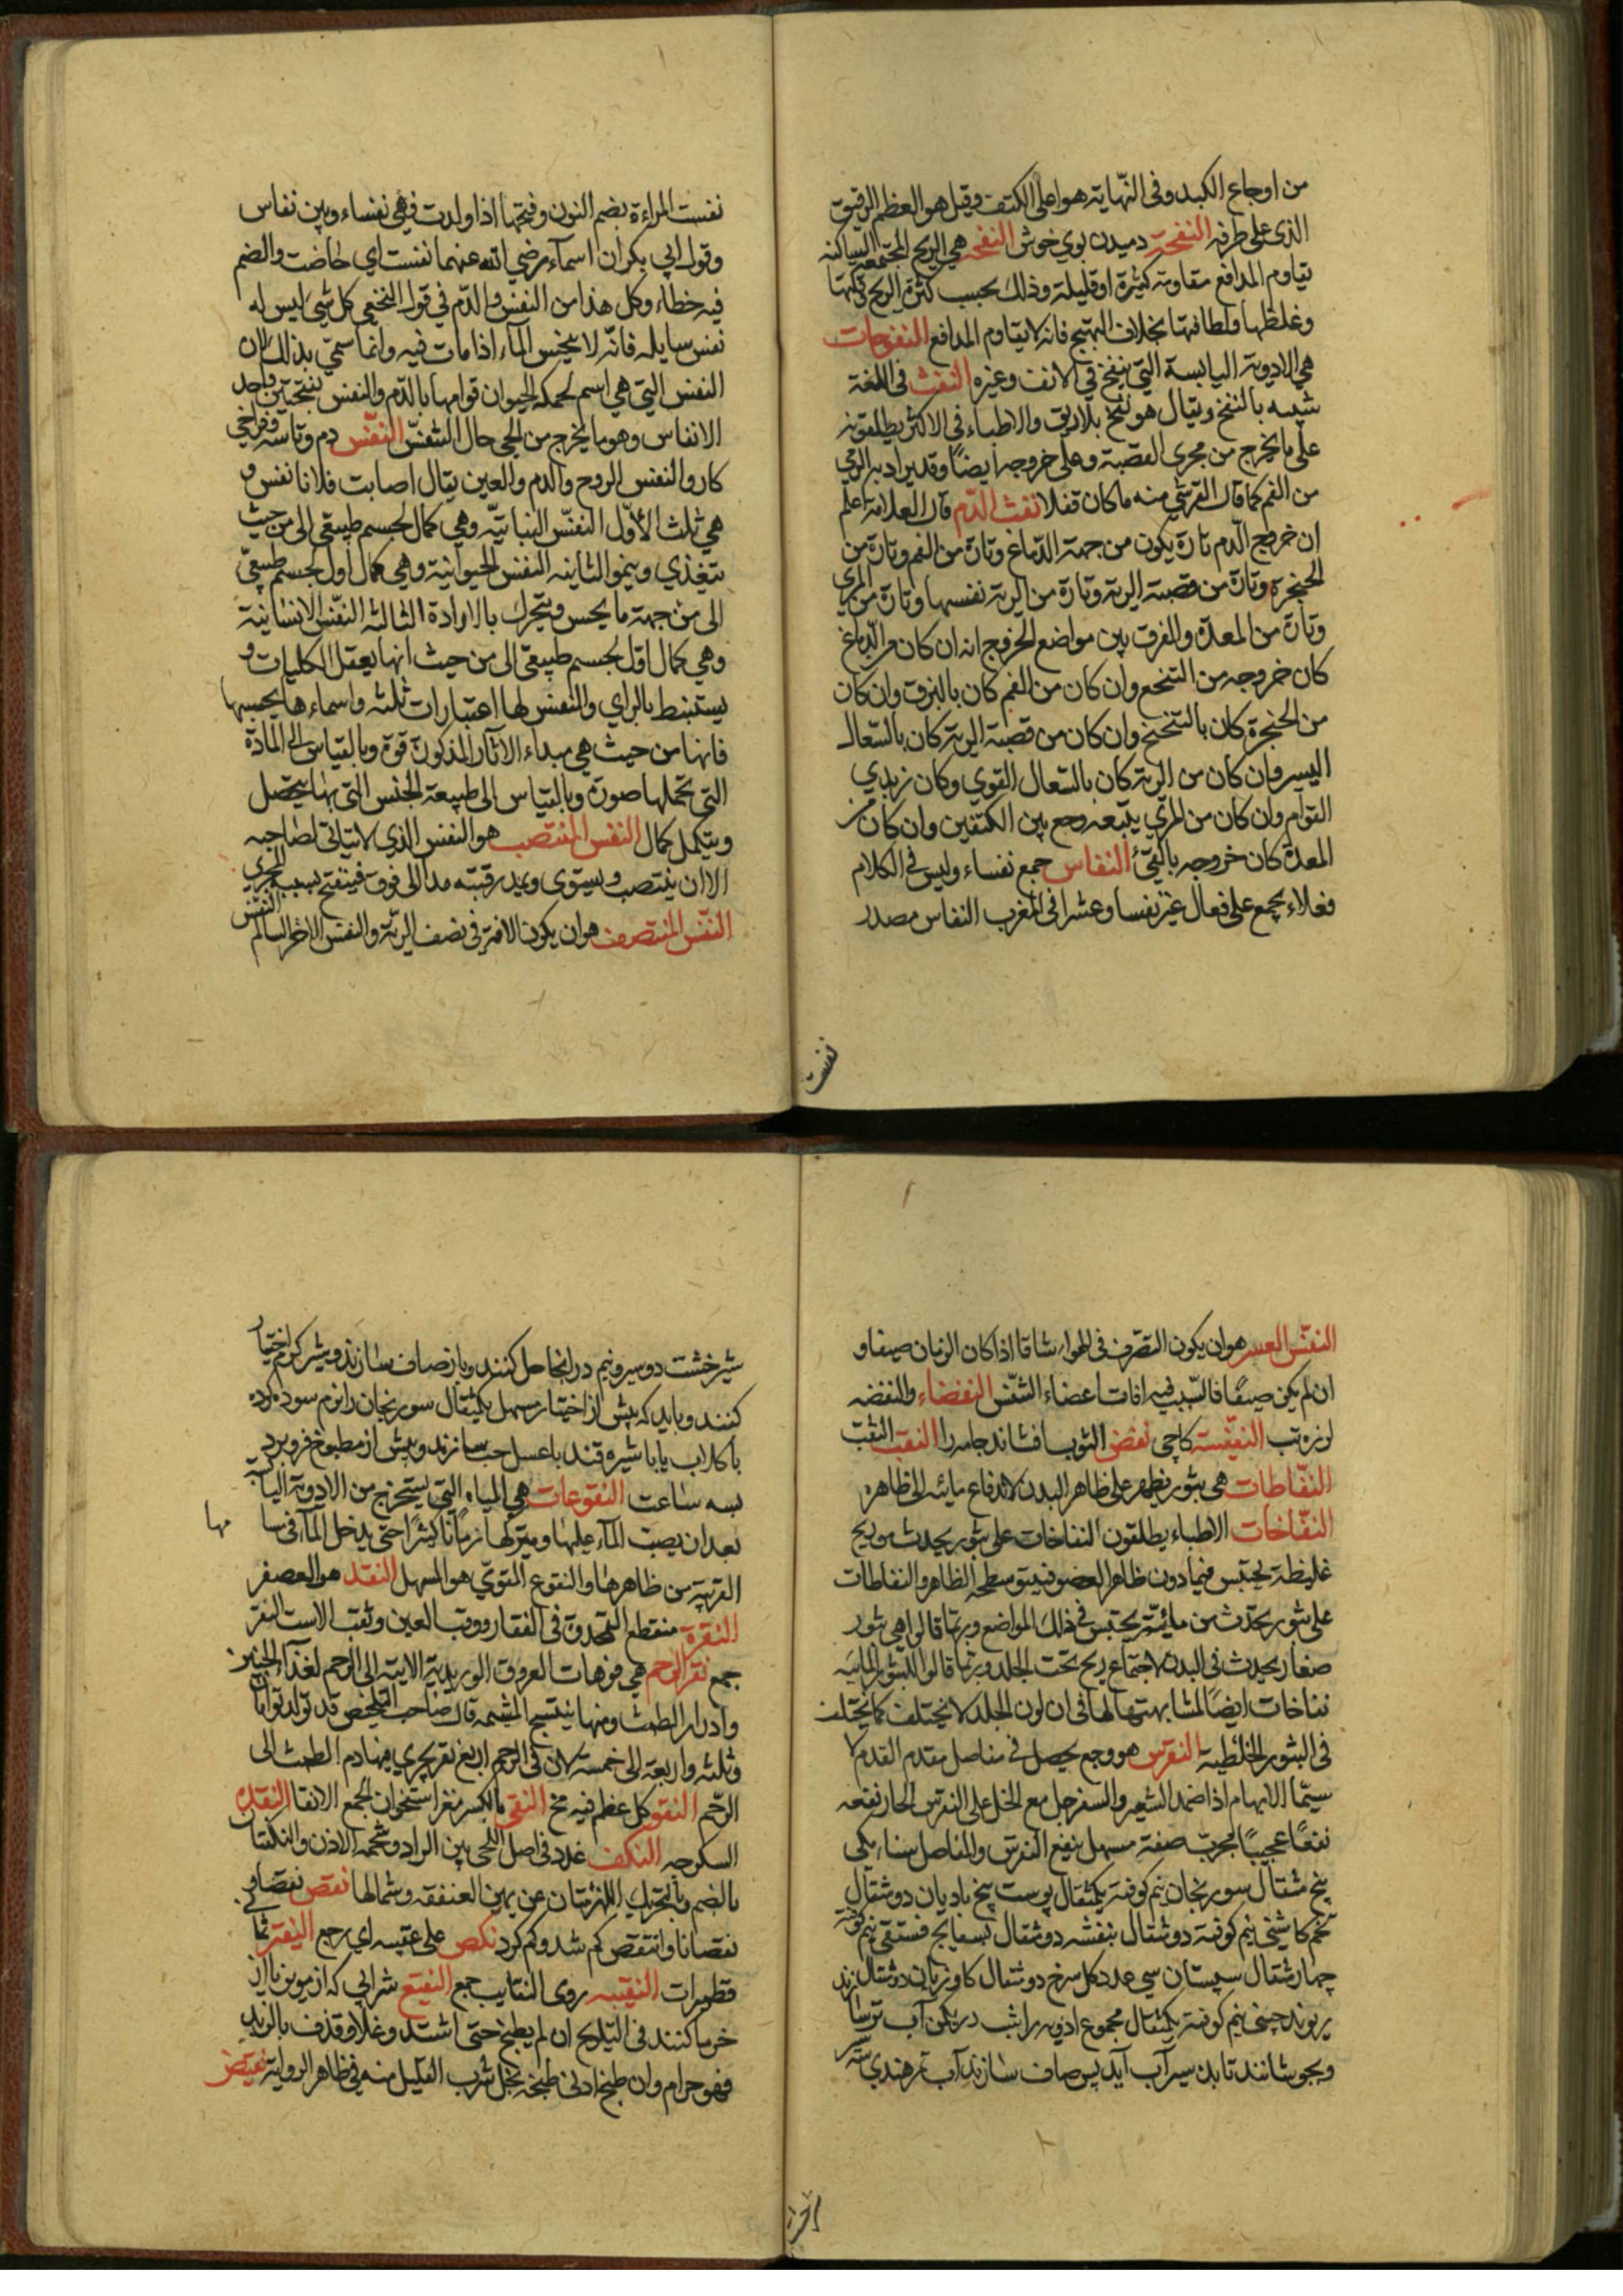 من اوجاع الكبد وفى النّهاية هو اعلى الكتف وقيل هو العظم الرقيق
الذى على طرفه النفحة دميدن بوي خوش النفخه هي الريح المجتمعة الساكنه
يقاوم المدافع مقاومة كثيرة او قليلة وذلك بحسب كثرة الريح وقلتها
وغلظها ولطافتها بخلاف التهيج فانه لا يقاوم المدافع النفوخات
هي الادوية اليابسة التي ينفخ في الانف وغيره النفث فى اللغة
شبيه بالنفخ ويقال هو نفخ بلا ريق والاطباء في الاكثر يطلقونه
على ما يخرج من مجرى القصبة وعلى خروجه ايضًا وقد يراد به الرمي
من الفم كما قال القرشي منه ما كان قفلا نفث الدّم قال العلامة اعلم
ان خروج الدّم تارة يكون من جهة الدّماغ وتارة من الفم وتارة من
الحنجرة وتارة من قصبة الرية وتارة من الرية نفسها وتارة من المري
وتارة من المعدة والفرق بين مواضع الخروج انه ان كان من الدّماغ
كان خروجه من التنخع وان كان من الفم كان بالبزق وان كان
من الحنجرة كان بالتنحنح وان كان من قصبة الرية كان بالسّعال
اليسير وان كان من الرية كان بالسّعال القوي وكان زبدي
القوام وان كان من المري يتبعه وجع بين الكتفين وان كان من
المعدة كان خروجه بالقيئ النفاس جمع نفساء وليس فى الكلام
فعلاء يجمع على فعال غير نفسا وعشرا فى المغرب النفاس مصدر
نفست
نفست المراءة بضم النون وفتحها اذا ولدت فهي نفساء وبين نفاس
وقول ابي بكر ان اسمآء رضي الله عنهما نفست اي حاضت والضم
فيه خطاء وكل هذا من النفس والدّم في قول النخعي كل شيئ ليس له
نفس سايله فانّه لا ينجس المآء اذا مات فيه وانما سمّي بذلك لان
النفس التي هي اسم لجملة الحيوان قوامها بالدّم والنفس بفتحتين واحد
الانفاس وهو ما يخرج من الحي حال التنفّس النّفس دم وتاسه وفراخي
كار والنفس الروح والدم والعين يقال اصابت فلانا نفس و
هي ثلث الأوّل النفس النباتيّه وهي كمال لجسم طبيعي الى من حيث
يتغذي وينمو الثانيه النفس الحيوانية وهي كمال اول لجسم طبيعيّ
الى من جهة ما يحس ويتحرك بالارادة الثالثه النفس الانسانية
وهي كمال اوّل لجسم طبيعي الى من حيث انها يعقل الكليات و
يستنبط بالراي والنفس لها اعتبارات ثلثه واسماءها بحسبها
فانها من حيث هي مبداء الاثار المذكورة قوة وبالقياس الى المادّة
التي تحملها صورة وبالقياس الى طبيعة الجنس التي بها يتحصل
ويتكمل كمال النفس المنتصب هو النفس الذي لا يتاتي لصاحبه
الا ان ينتصب ويستوى ويمد رقبته مدا الى فوق فينفتح بسبب المجري
النفس
النّفس المنتصف هو ان يكون الافة في نصف الريّة والنفس الاخر السالم
النفّس العسر هو ان يكون التصرف في الهواء شاقا اذا كان الزمان صيفا و
ان لم يكن صيفًا فالسّبب فيه افات اعضاء التنفّس النفضاء والنفضه
لرزه تب النفيّسته كاچى نفض الثوب افشاند جامه را النقب الثقب
النفّاطات هي بثور يظهر على ظاهر البدن لاندفاع مائته الى ظاهره
النفّاخات الاطباء يطلقون النفاخات على بثور يحدث من ريح
غليظة يحتبس فيما دون ظاهر العضو فينتو سطحه الظاهر والنفاطات
على بثور يحدث من مائيّة يحتبس في ذلك المواضع وربما قالوا هي بثور
صغار يحدث فى البدن لاجتماع ريح تحت الجلد وربما قالوا للبثور المائيه
نفاخات ايضًا لمشابهتها لها فى ان لون الجلد لا يختلف كما يختلف
فى البثور الخلطية النقرس هو وجع يحصل في مفاصل مقدم القدم لا
سيّما الابهام اذا ضمد الشعير والسفرجل مع الخل على النقرس الحار نفعه
نفعًا عجيبًا مجرب صفة مسهل ينفع النقرس والمفاصل سناء مكى
پنج مثقال سورنجان نيم كوفته يكمثقال پوست بيخ باديان دو مثقال
تخم كاشني نيم كوفته دو مثقال بنفشه دو مثقال بسفايج فستقى نيم كوفته
چهار مثقال سپستان سي عدد كل سرخ دو مثقال كاوزبان دو مثقال
ريوند چيني نيم كوفته يكمثقال مجموع ادويه را شب در يكمن آب ترسا زند
وبجوشانند تا بده سير آب آيد پس صاف سازند آب تمر هندي سه سير
شيرخشت دو سير ونيم در انجا حل كنند وباز صاف سازند وشير كرم اختيار
كنند وبايد كه پيش از اختيار مسهل يكمثقال سورنجان را نرم سوده كرده
با كلاب يا با شيره قند يا عسل حب سازند وپيش از مطبوخ فرو برد
بسه ساعت النقوعات هي المياه التي يستخرج من الادوية اليابسة
بعد ان يصب المآء عليها ويتركها زمانًا كثيرًا حتى يدخل المآء فى مسا
مها
القريبة من ظاهرها والنقوع المقوّي هو المسهل النقد هو العصفر
النقرة منقطع القمحدوة فى الفقار ووقب العين وثقب الاست النقر
جمع نقر الرحم هي فوهات العروق الوريدية الاتية الى الرحم لغذآء الجنين
وادرار الطمث ومنها ينتسج المشيمه قال صاحب التلخيص قد تولد توامان
وثلثه واربعة الى خمسة لان فى الرحم اربع نقر يجري منها دم الطمث الى
الرّحم النقو كل عظم فيه مخ النقي بالكسر مغز استخوان الجمع الانقا النقله
السكرجه النكف غدد فى اصل اللحي بين الراد وشحمة الاذن والنكفتان
بالضم وبالتحريك اللهزمتان عن يمين العنفقه وشمالها نقص نقصا و
نقصانا وانتقص كم شد وكم كرد نكص على عقبيه اي رجع النقرتما في
قطيرات النقيبه روى النقايب جمع النقيع شرابي كه از مويز يا از
خرما كنند فى التلويح ان لم يطبخ حتى اشتد وغلا وقذف بالزبد
فهو حرام وان طبخ ادنى طبخة يحل شرب القليل منه في ظاهر الرواية